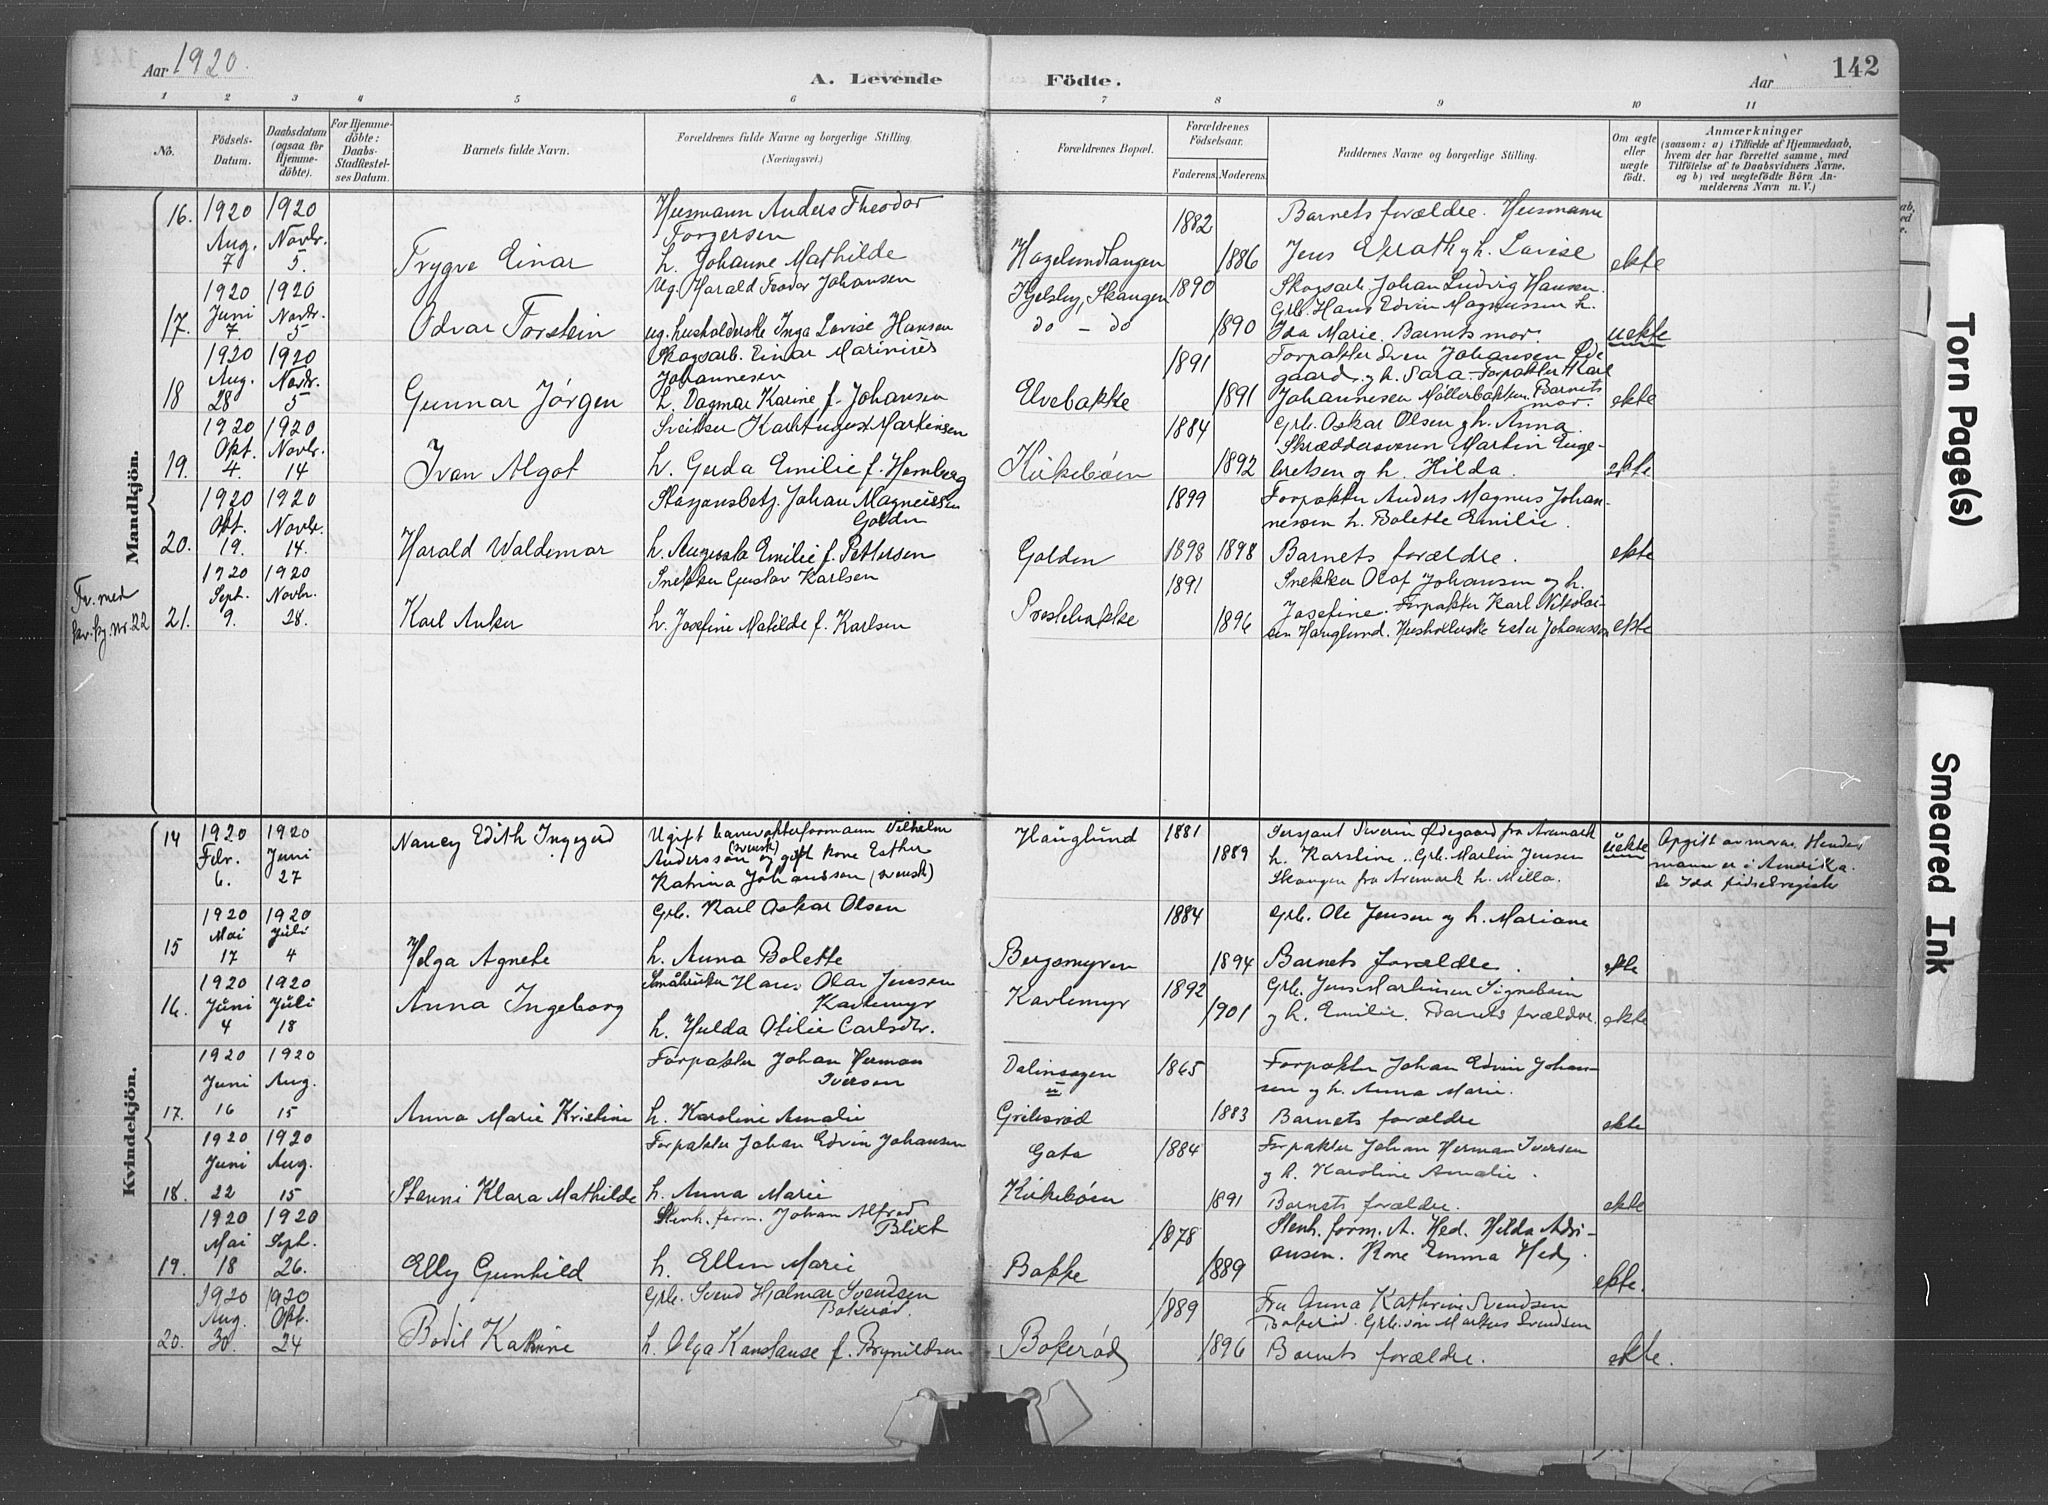 Aar 1920.
A. Levende Födte.
Aar
142
1 2 3 4 5 6 7 8 9 10 11
No.
Födsels-Datum.
Daabsdatum (ogsaa for Hjemme-döbte).
For Hjemme-döbte: Daabs-Stadfæstel-ses Datum.
Barnets fulde Navn.
Forældrenes fulde Navne og borgerlige Stilling.
(Næringsvei.)
Forældrenes Bopæl.
Forældrenes Födselsaar.
Faderens. Moderens.
Faddernes Navne og borgerlige Stilling.
Om ægte eller uægte födt.
Anmærkninger
(saasom: a) i Tilfælde af Hjemmedaab, hvem der har forrettet samme, med Tilföielse af to Daabsvidners Navne, og b) ved uægtefödte Börn An-melderens Navn m. V.)
Mandkjön.
16. 1920 Aug. 7
1920 Novbr. 5.
Trygve Einar
Husmann Anders Theodor
Torgersen
h. Johanne Mathilde
Hagelundhaugen
1882
1886
Barnets forældre. Husmann
Jens
og h. Lovise
ekte
17. 1920 Juni 7
1920 Novbr. 5
Odvar Torstein
Ug. Harald Teodor Johansen
ug. husholderske Inga Lovise Hansen
Skaugen
do - do
1890
1890
Skogsarb. Johan Ludvig Hansen.
Grb. Hans Edvin Magnussen h.
Ida Marie. Barnets mor.
uekte
18 1920 Aug. 28
1920 Novbr. 5
Gunnar Jørgen
Skogsarb. Einar Marinius
Johannesen
h. Dagmar Karine f. Johansen
Elvebakke
1891
1891
Forpakter Sven Johansen Øde
gaard og h. Sara. Forpakter Karl
Johannesen Møllerbakken. Barnets
mor.
ekte
19. 1920 Okt. 4.
1920 Novbr. 14
Ivan Algot
Sveitser Karl August Martinsen
h. Gerda Emilie f. Hornberg
Kirkebøen
1884
1892
Grb. Oskar Olsen og h. Anna.
Skræddersvenn Martin Enge-
bretsen og h. Hilda.
ekte
20. 1920 Okt. 19.
1920 Novbr. 14.
Harald Waldemar
Stasjonsbetj. Johan Magnussen
Golden
h. Augusta Emilie f. Pettersen
Golden
1899
1898 1898
Forpakter Anders Magnus Johan-
nessen h. Bolette Emilie.
Barnets forældre.
ekte
Tv. med
kv.kj. nr. 22
21. 1920 Sept. 9.
1920 Novbr. 28.
Karl Anker
Snekker Gustav Karlsen
h. Josefine Matilde f. Karlsen
Prestebakke
1891
1896
Snekker Olaf Johansen og h.
Josefine. Forpakter Karl Nikolai-
sen Hauglund. Husholderske Ester Johansson
ekte
Kvindekjön.
14 1920 Febr. 6.
1920 Juni 27
Nancy Edith Ingegerd
Ugift
formann Vilhelm
Andersson (svensk) og gift kone Esther
Katrina Johansson (svensk)
Hauglund
1881
1889
Sersjant Severin Ødegaard fra Aremark
h. Karoline. Grb. Martin Jensen
Skaugen fra Aremark h. Milla.
uekte
Opgitt av moren. Hendes
mann er i Amerika.
Se Idd fødselsregister
15 1920 Mai 17
1920 Juli 4
Helga Agnete
Grb. Karl Oskar Olsen
h. Anna Bolette
Bergsmyren
1884
1894
Grb. Ole Jensen og h. Mariane
Barnets forældre.
ekte
16. 1920 Juni 4
1920 Juli 18
Anna Ingeborg
Småbruker Hans Olav Jensen
Kavlemyr
h. Hulda Otilie Carlsdtr.
Kavlemyr
1892
1901
Grb. Jens Martinsen Signebøin
og h. Emilie. Barnets forældre.
ekte
17. 1920 Juni 16
1920 Aug. 15
Anna Marie Kristine
Forpakter Johan Herman
Iversen
h. Karoline Amalie
Gribsrød
1865
1883
Forpakter Johan Edvin Johan-
sen og h. Anna Marie.
Barnets forældre
ekte
18. 1920 Juni 22
1920 Aug. 15
Stenni Klara Mathilde
Forpakter Johan Edvin Johansen
h. Anna Marie
Gata
Kirkebøen
1884
1891
Forpakter Johan Herman Iversen
og h. Karoline Amalie.
Barnets forældre.
ekte
19. 1920 Mai 18
1920 Sept. 26.
Elly Gunhild
Stenh. form. Johan Alfred
Blixt
h. Ellen Marie
Bakke
1878
1889
Stenh. form. A. Hed. Hilda Adri-
ansen. Kone Emma Hed.
ekte.
20. 1920 Aug. 30.
1920 Okt. 24
Bodil Katrine
Grb. Svend Hjalmar Svendsen
Bokerød
h. Olga Konstanse f. Brynildsen
Bokerød
1889
1896
Fru Anna Kathrine Svendsen
Bokerød. Grb. søn Markus Svendsen
Barnets forældre.
ekte.
Torn Page(s)
Smeared Ink